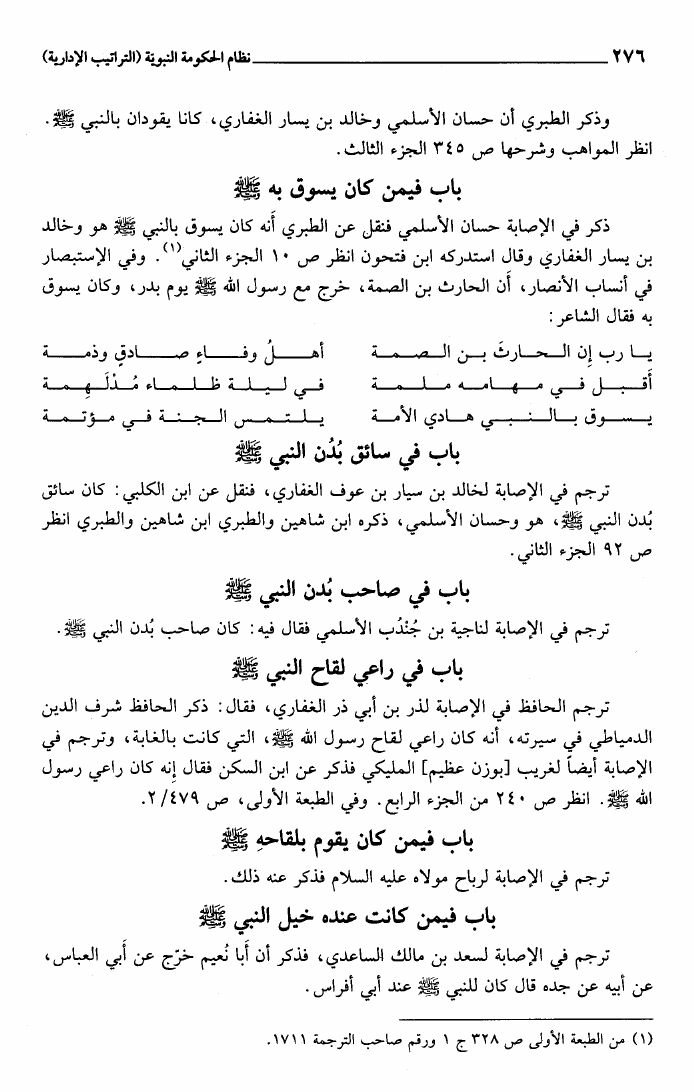 ٢٧٦ نظام الحكومة النبويّة (التراتيب الإدارية)
وذكر الطبري أن حسان الأسلمي وخالد بن يسار الغفاري، كانا يقودان بالنبي ﷺ.
انظر المواهب وشرحها ص ٣٤٥ الجزء الثالث.
باب فيمن كان يسوق به ﷺ
ذكر في الإصابة حسان الأسلمي فنقل عن الطبري أنه كان يسوق بالنبي ﷺ هو وخالد
بن يسار الغفاري وقال استدركه ابن فتحون انظر ص ١٠ الجزء الثاني(١). وفي الإستبصار
في أنساب الأنصار، أن الحارث بن الصمة، خرج مع رسول الله ﷺ يوم بدر، وكان يسوق
به فقال الشاعر:
يا رب إن الحارثَ بن الصمة أهلُ وفاءٍ صادقٍ وذمة
أقبل في مهامه ملمة في ليلة ظلماء مُدْلَهِمة
يسوق بالنبي هادي الأمة يلتمس الجنة في مؤتمة
باب في سائق بُدُن النبي ﷺ
ترجم في الإصابة لخالد بن سيار بن عوف الغفاري، فنقل عن ابن الكلبي: كان سائق
بُدن النبي ﷺ، هو وحسان الأسلمي، ذكره ابن شاهين والطبري ابن شاهين والطبري انظر
ص ٩٢ الجزء الثاني.
باب في صاحب بُدن النبي ﷺ
ترجم في الإصابة لناجية بن جُنْدُب الأسلمي فقال فيه: كان صاحب بُدن النبي ﷺ.
باب في راعي لقاح النبي ﷺ
ترجم الحافظ في الإصابة لذر بن أبي ذر الغفاري، فقال: ذكر الحافظ شرف الدين
الدمياطي في سيرته، أنه كان راعي لقاح رسول الله ﷺ، التي كانت بالغابة، وترجم في
الإصابة أيضاً لغريب [بوزن عظيم] المليكي فذكر عن ابن السكن فقال إنه كان راعي رسول
الله ﷺ. انظر ص ٢٤٠ من الجزء الرابع. وفي الطبعة الأولى، ص ٢/٤٧٩.
باب فيمن كان يقوم بلقاحهِ ﷺ
ترجم في الإصابة لرباح مولاه عليه السلام فذكر عنه ذلك.
باب فيمن كانت عنده خيل النبي ﷺ
ترجم في الإصابة لسعد بن مالك الساعدي، فذكر أن أبا نُعيم خرّج عن أبي العباس،
عن أبيه عن جده قال كان للنبي ﷺ عند أبي أفراس.
(١) من الطبعة الأولى ص ٣٢٨ ج ١ ورقم صاحب الترجمة ١٧١١.